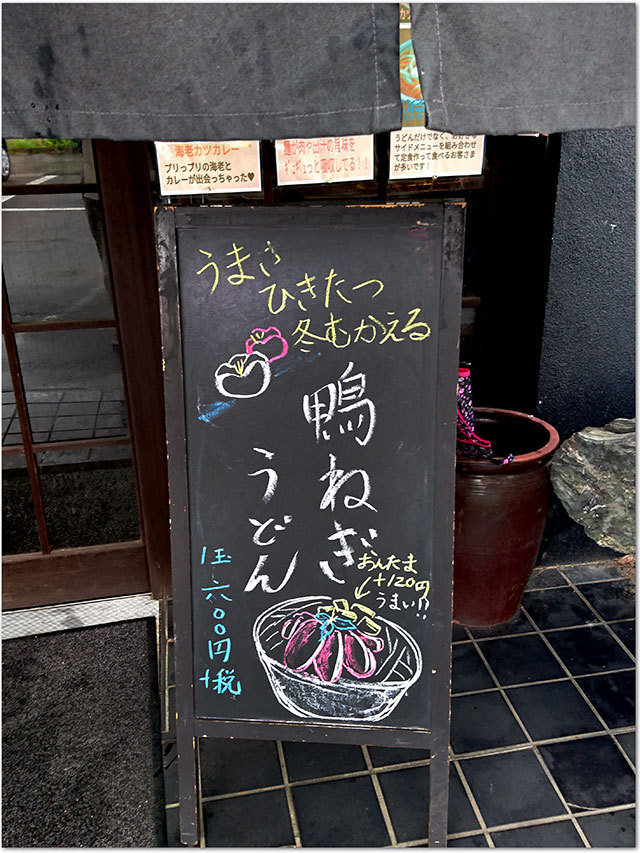 海老カツカレー
プリっプリの海老と
カレーが出会っちゃった♥
麺が肉や出汁の旨味を
ギュギュっと吸収してる!!
うどんだけでなく、お好きな
サイドメニューを組み合わせ
て定食作って食べるお客さま
が多いです!
うまさ
ひきたつ
冬むかえる
鴨ねぎ
うどん
1玉 六〇〇円 +税
おんたま
+120円
うまい!!